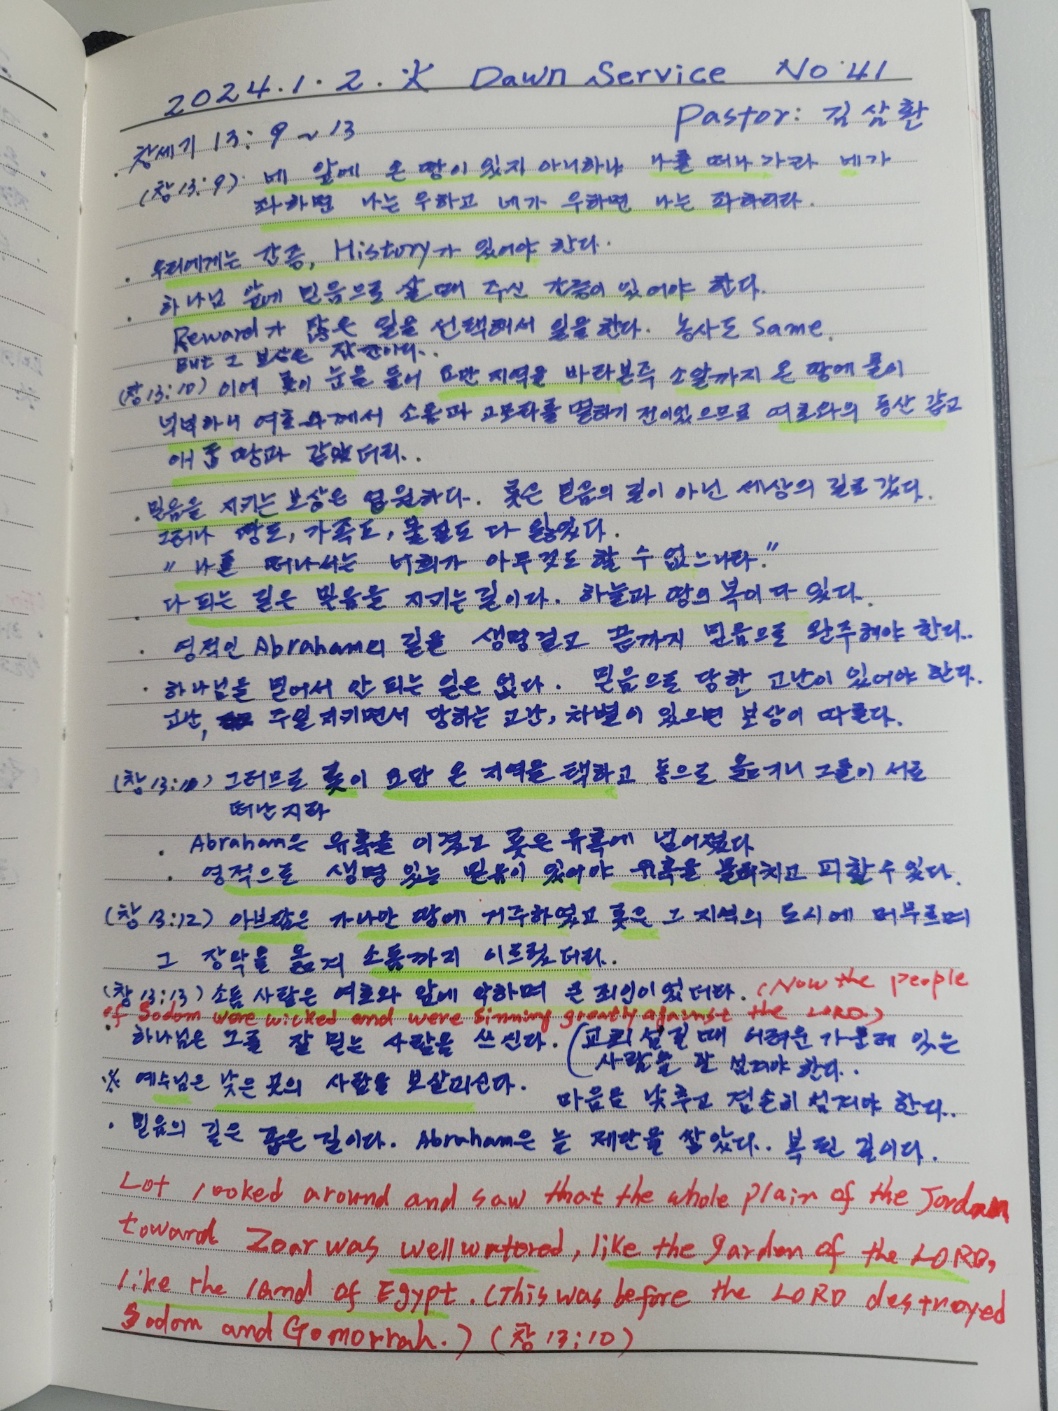 2024.1.2.火 Dawn Service No.41
창세기 13:9~13 Pastor: 김삼환
(창13:9) 네 앞에 온 땅이 있지 아니하냐 나를 떠나 가라 네가
좌하면 나는 우하고 네가 우하면 나는 좌하리라.
· 우리에게는 간증, History가 있어야 한다.
· 하나님 앞에 믿음으로 살 때 주신 간증이 있어야 한다.
Reward가 많은 일을 선택해서 일을 한다. 농사도 Same.
But 그 보상은 잠깐이다..
(창13:10) 이에 롯이 눈을 들어 요단 지역을 바라본즉 소알까지 온 땅에 물이
넉넉하니 여호와께서 소돔과 고모라를 멸하기 전이었으므로 여호와의 동산 같고
애굽 땅과 같았더라..
· 믿음을 지키는 보상은 영원하다. 롯은 믿음의 길이 아닌 세상의 길로 갔다.
그러나 땅도, 가족도, 물질도 다 잃었다.
" 나를 떠나서는 너희가 아무것도 할 수 없느니라."
· 다 되는 길은 믿음을 지키는 길이다. 하늘과 땅의 복이 다 있다.
· 영적인 Abraham의 길을 생명걸고 끝까지 믿음으로 완주해야 한다..
· 하나님을 믿어서 안 되는 일은 없다. 믿음으로 당한 고난이 있어야 한다.
고난, 주일 지키면서 당하는 고난, 차별이 있으면 보상이 따른다.
(창13:10) 그러므로 롯이 요단 온 지역을 택하고 동으로 옮기니 그들이 서로
떠난지라
· Abraham은 유혹을 이겼고 롯은 유혹에 넘어졌다
· 영적으로 생명 있는 믿음이 있어야 유혹을 물리치고 피할 수 있다.
(창13:12) 아브람은 가나안 땅에 거주하였고 롯은 그 지역의 도시에 머무르며
그 장막을 옮겨 소돔까지 이르렀더라.
(창13:13) 소돔 사람은 여호와 앞에 악하며 큰 죄인이었더라. (Now the people
of Sodom were wicked and were sinning greatly against the LORD.)
· 하나님은 그를 잘 믿는 사람을 쓰신다. (교회 섬길 때 어려운 가운데 있는
사람을 잘 섬겨야 한다..
※ 예수님은 낮은 곳의 사람을 보살피신다. 마음을 낮추고 겸손히 섬겨야 한다..
· 믿음의 길은 좁은 길이다. Abraham은 늘 제단을 쌓았다.. 복된 길이다.
Lot looked around and saw that the whole plain of the Jordan
toward Zoar was well watered, like the garden of the LORD,
like the land of Egypt. (This was before the LORD destroyed
Sodom and Gomorrah.) (창13:10)